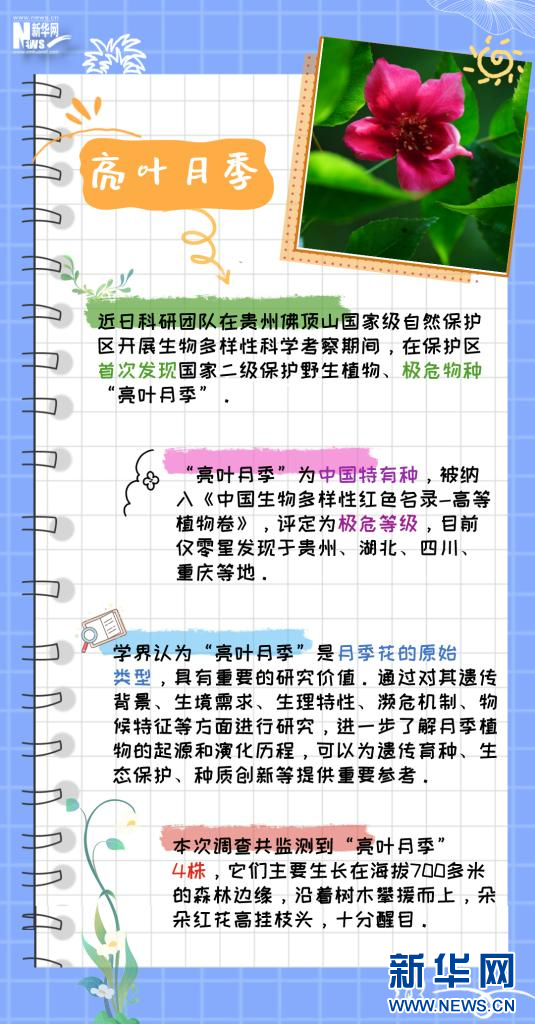 www.news.cn
新华网
NEWS
亮叶月季
近日科研团队在贵州佛顶山国家级自然保护
区开展生物多样性科学考察期间，在保护区
首次发现国家二级保护野生植物、极危物种
“亮叶月季”．
“亮叶月季”为中国特有种，被纳
入《中国生物多样性红色名录-高等
植物卷》，评定为极危等级，目前
仅零星发现于贵州、湖北、四川、
重庆等地．
学界认为“亮叶月季”是月季花的原始
类型，具有重要的研究价值．通过对其遗传
背景、生境需求、生理特性、濒危机制、物
候特征等方面进行研究，进一步了解月季植
物的起源和演化历程，可以为遗传育种、生
态保护、种质创新等提供重要参考．
本次调查共监测到“亮叶月季”
4株，它们主要生长在海拔700多米
的森林边缘，沿着树木攀援而上，朵
朵红花高挂枝头，十分醒目．
新华网
WWW.NEWS.CN